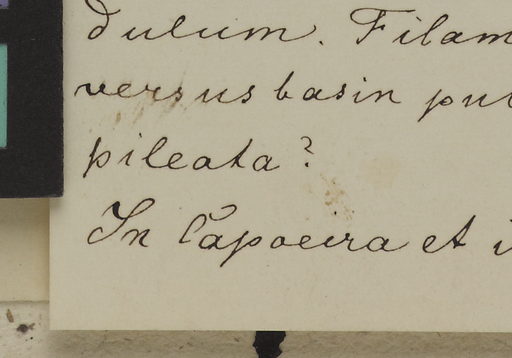 dulum. Filam
versus basin pu
pileata?
In Capoeira et